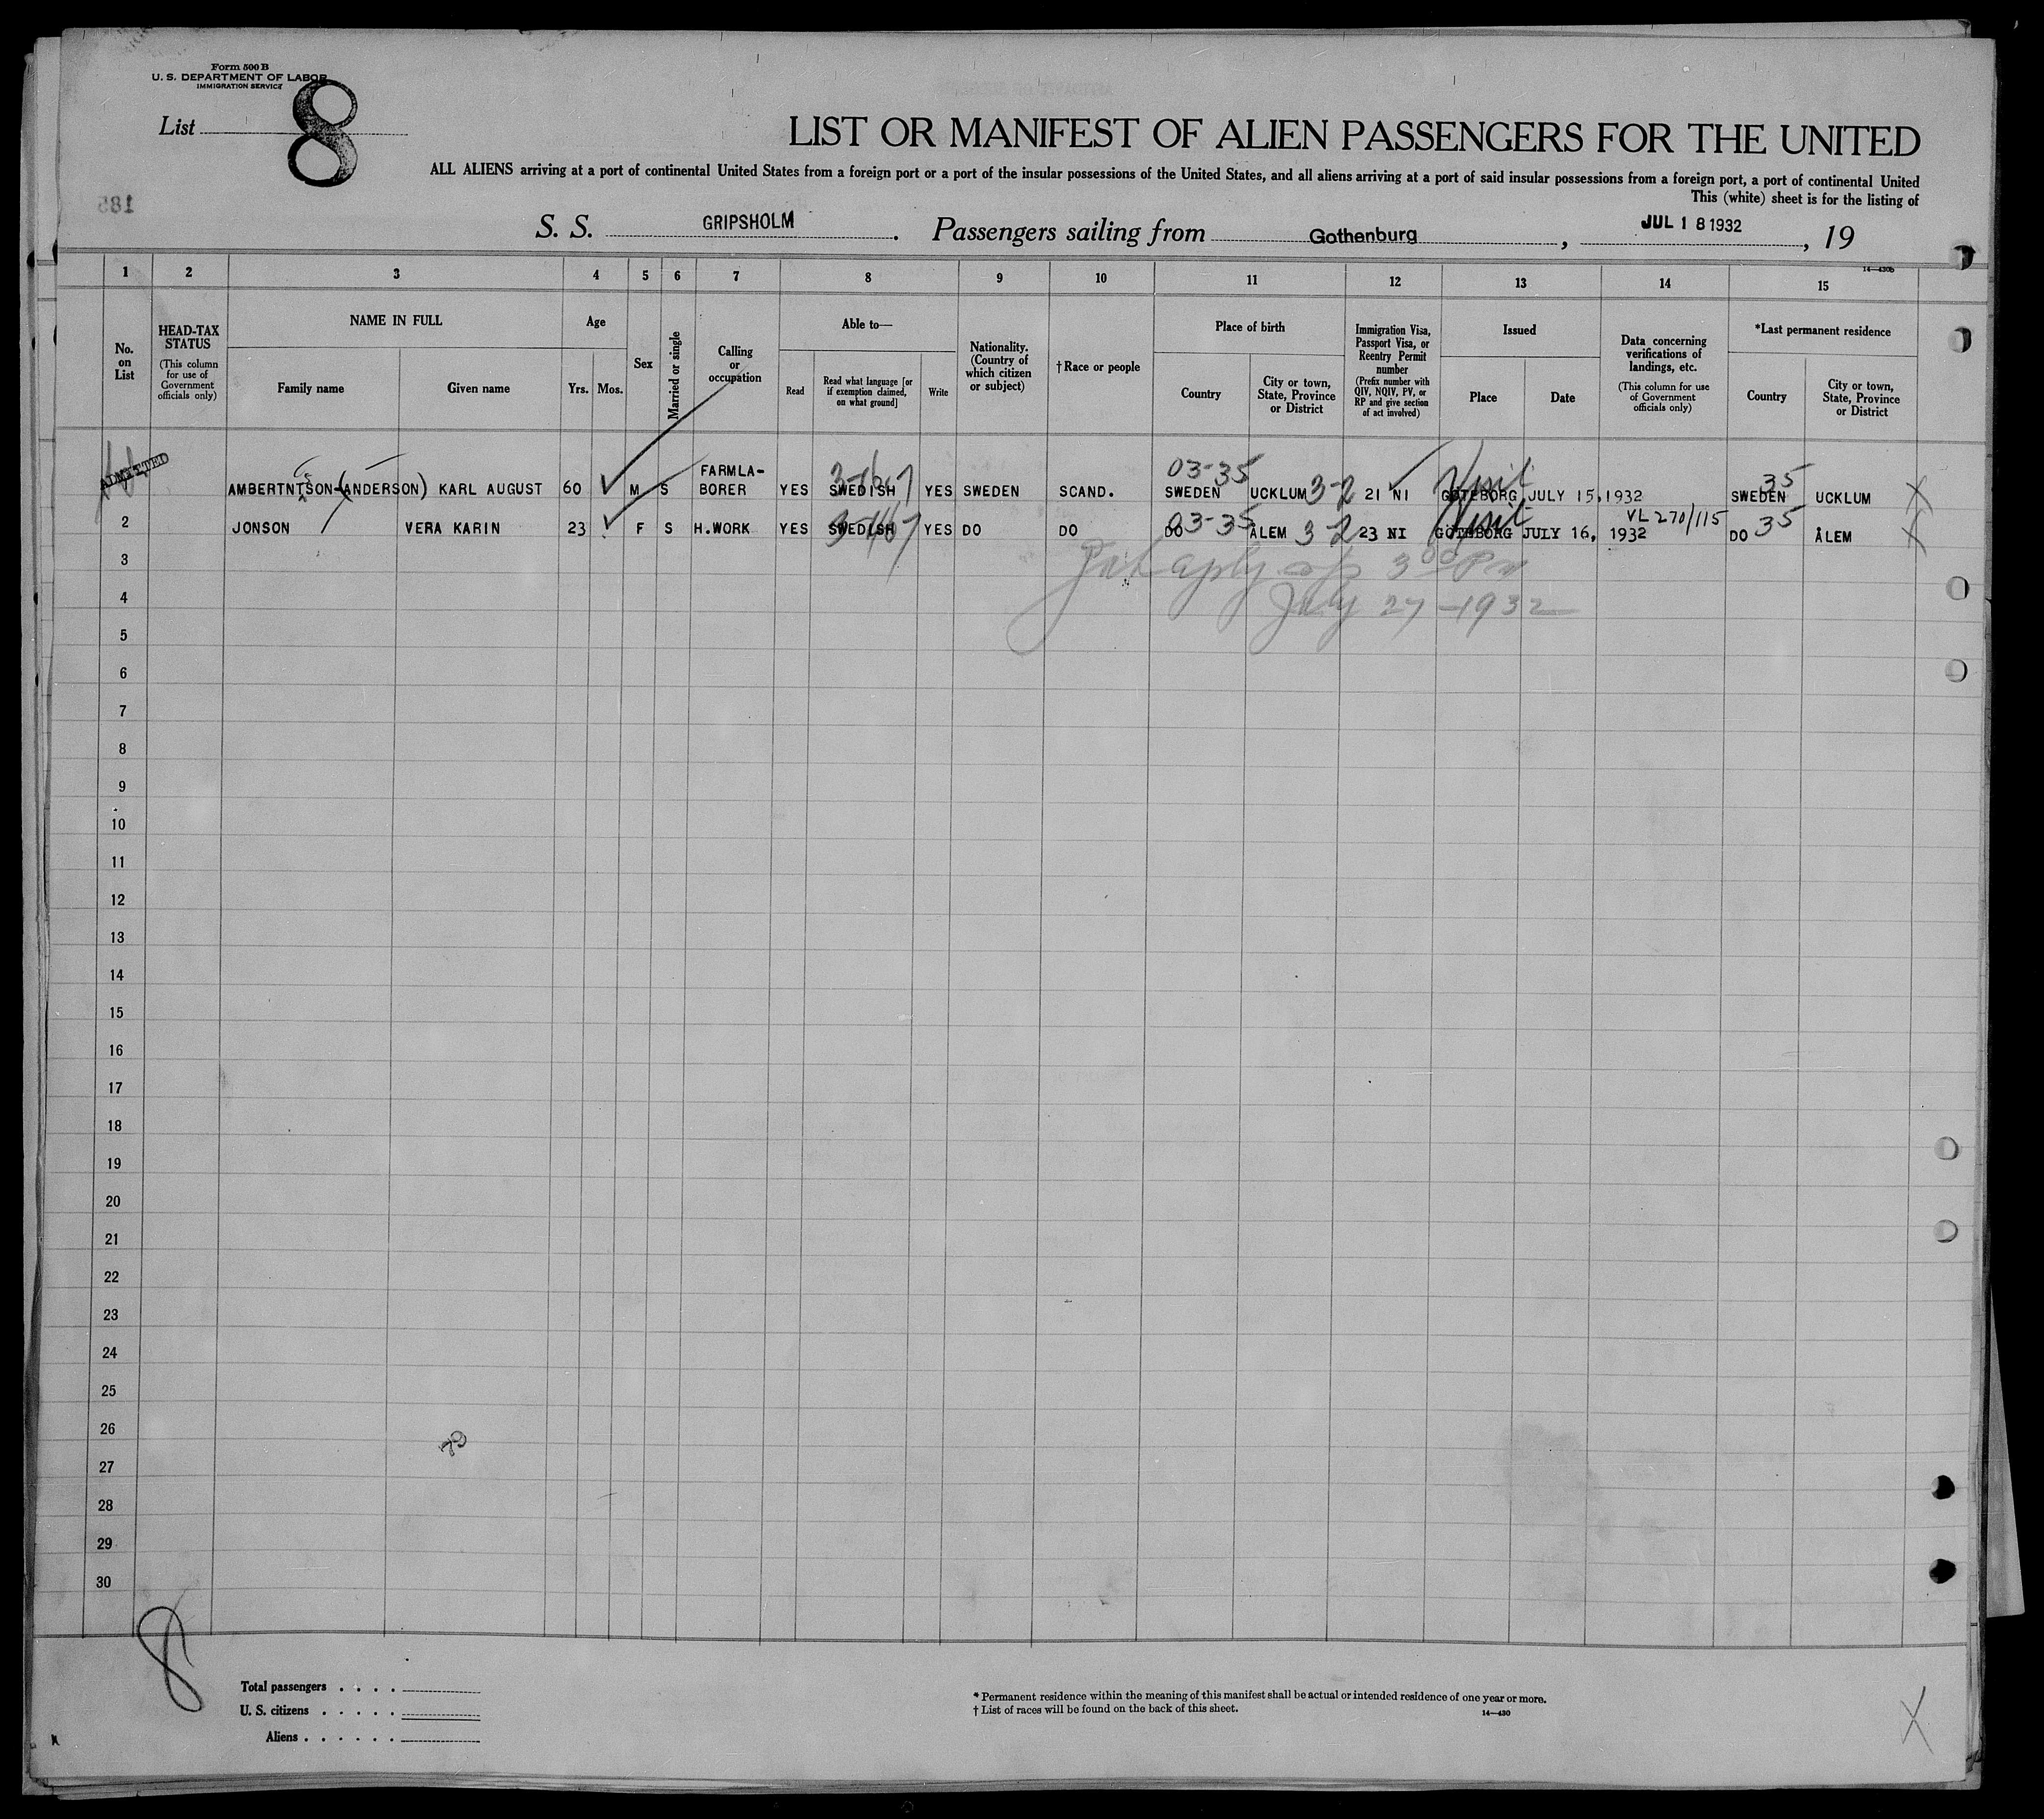 Form 500 B
U. S. DEPARTMENT OF LABOR
IMMIGRATION SERVICE
List 8
LIST OR MANIFEST OF ALIEN PASSENGERS FOR THE UNITED
ALL ALIENS arriving at a port of continental United States from a foreign port or a port of the insular possessions of the United States, and all aliens arriving at a port of said insular possessions from a foreign port, a port of continental United
This (white) sheet is for the listing of
185
S. S. GRIPSHOLM. Passengers sailing from Gothenburg, JUL 18 1932, 19
14—430b
1 2 3 4 5 6 7 8 9 10 11 12 13 14 15
No. on List
HEAD-TAX STATUS (This column for use of Government officials only)
NAME IN FULL
Family name
Given name
Age
Yrs. Mos.
Sex
Married or single
Calling or occupation
Able to—
Read
Read what language [or if exemption claimed, on what ground]
Write
Nationality. (Country of which citizen or subject)
†Race or people
Place of birth
Country
City or town, State, Province or District
Immigration Visa, Passport Visa, or Reentry Permit number (Prefix number with QIV, NQIV, PV, or RP and give section of act involved)
Issued
Place
Date
Data concerning verifications of landings, etc. (This column for use of Government officials only)
*Last permanent residence
Country
City or town, State, Province or District
ADMITTED
FARMLA-
03-35 Visit 35
AMBERTNTSON-(ANDERSON) KARL AUGUST 60 M S BORER YES SWEDISH YES SWEDEN SCAND. SWEDEN UCKLUM 3-2 21 NI GÖTEBORG JULY 15,1932 SWEDEN UCKLUM
03-35 Visit VL 270/115
2 JONSON VERA KARIN 23 F S H.WORK YES SWEDISH YES DO DO DO ÅLEM 3-2 23 NI GÖTEBORG JULY 16, 1932 DO 35 ÅLEM
3 3 00 Pm
4 July 27-1932
5
6
7
8
9
10
11
12
13
14
15
16
17
18
19
20
21
22
23
24
25
26
27
28
29
30
8
Total passengers . . . .
U. S. citizens . . . . .
Aliens . . . . . .
* Permanent residence within the meaning of this manifest shall be actual or intended residence of one year or more.
† List of races will be found on the back of this sheet.
14—430